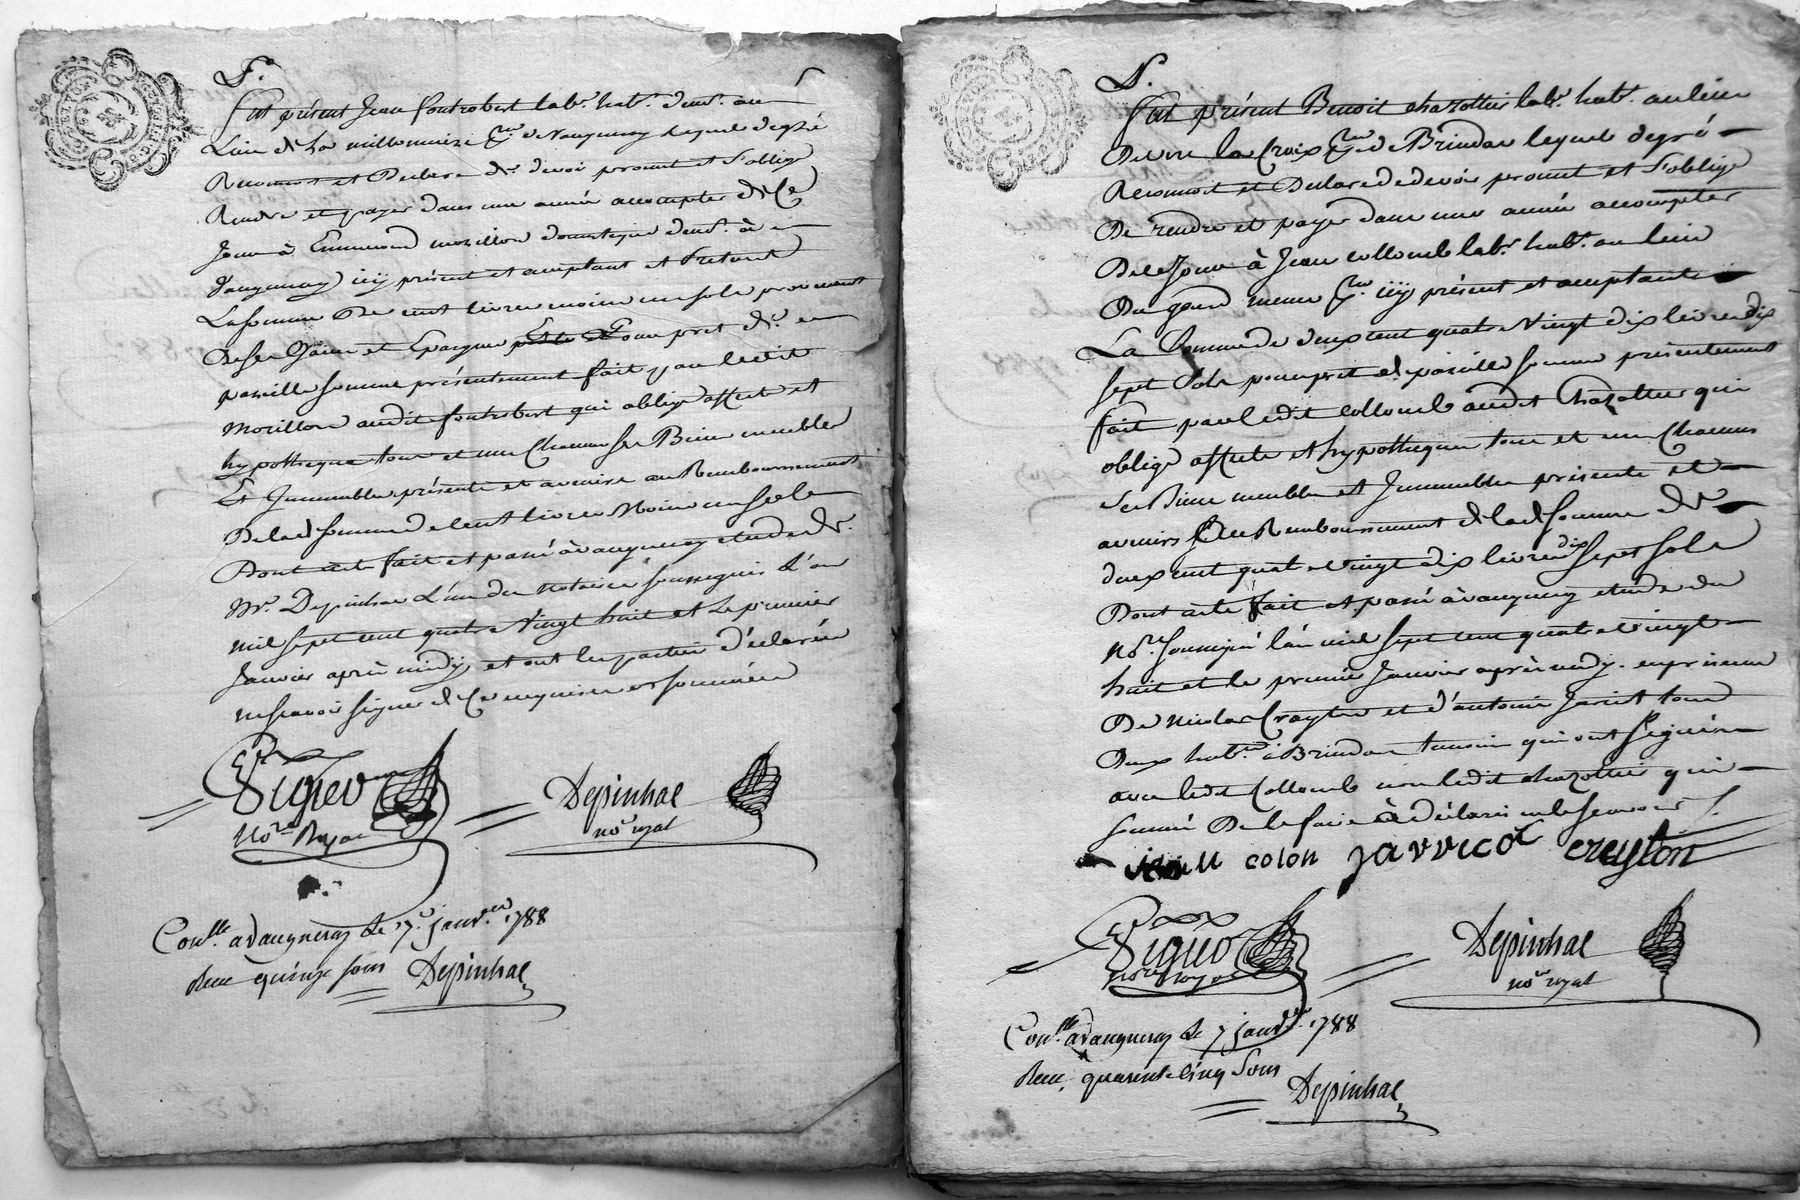 F.
fut présent Jean fontrobert lab.r hab.t dem.t au
Lieu de La millonniere de Vaugneray Lequel degré
Reconnoit et Declare de devoir promet et s'oblige
Rendre et payer dans une année acompter de Ce
Jour à Emmeord morillon domestique dem.t à
Vaugneray icy présent et aceptant et
La somme De cent livres moins un sols provenant
De ses Gaines et Epargne pour pret de
pareille somme présentement fait par ledit
Morillon audit fontrobert qui oblige affecte et
hypotheque tous et un Chacuns ses Biens meubles
Et Jmmeubles présents et avenirs au Remboursement
De lad. somme de Cent livres Moins un sols
Dont acte fait et passé à vaugneray etude de
M.e Depinhac L'un des Notaires soussignés L'an
mil sept cent quatre Vingt huit et Le premier
Janvier après midy et ont les parties déclarées
ne scavoir signer de Ce enquises et sommées
Vigier
No.re Royal
Depinhac
no.re royal
Con.lle a Vaugneray le 7.e janv.er 1788
Reçu quinze sous Depinhac
N.
fut présent Benoit chazottier lab.r hab.t au lieu
De la Croix de Brindas lequel degré
Reconnoit et Declare de devoir promet et s'oblige
De rendre et payer dans une année acompter
De Ce Jour à Jean collomb lab.r hab.t au lieu
Du meme icy présent et aceptant
La Somme de deux cent quatre Vingt dix livres dix
sept Sols pour pret de pareille somme présentement
fait par ledit collomb audit Chazottier qui
oblige affecte et hypotheque tous et un Chacuns
ses Biens meubles et Jmmeubles présents et
avenirs Au Remboursement de lad. somme de
deux cent quatre vingt dix livres dix sept sols
Dont acte fait et passé à vaugneray etude du
No.re soussigné l'an mil sept cent quatre vingt
huit et le premier Janvier après midy en présence
De Nicolas Crayton et d'antoine Jaricot tous
Deux hab.ts à Brindas temoins qui ont signé
avec ledit Collomb non ledit chazottier qui
sommé De le faire à déclaré ne le scavoir
colon jarricot creyton
Vigier
No.re Royal
Depinhac
no.re royal
Con.lle a Vaugneray le 7 janv.er 1788
Reçu quarente Cinq Sous
Depinhac